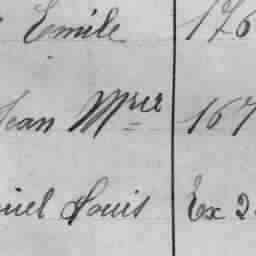 Emile 176
Jean Mce 167
niel Louis Ex 2